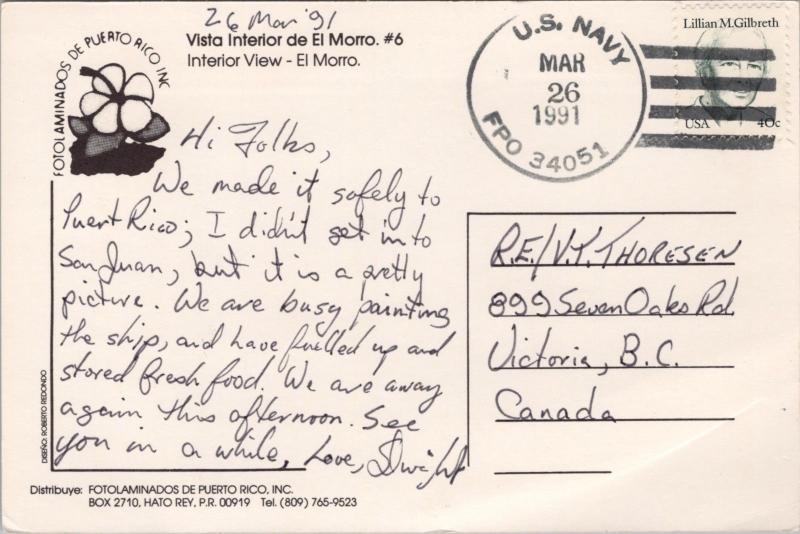 26 Mar '91
Vista Interior de El Morro. #6
Interior View - El Morro.
FOTOLAMINADOS DE PUERTO RICO INC
U.S. NAVY
MAR
26
1991
FPO 34051
Lillian M.Gilbreth
USA 40c
Hi Folks,
We made it safely to
Puert Rico; I didn't get in to
San Juan, but it is a pretty
picture. We are busy painting
the ship, and have fuelled up and
stored fresh food. We are away
again this afternoon. See
you in a while, Love, Dwight
R.E./V.Y. THORESEN
899 Seven Oaks Rd.
Victoria, B.C.
Canada
DISEÑO: ROBERTO REDONDO
Distribuye: FOTOLAMINADOS DE PUERTO RICO, INC.
BOX 2710, HATO REY, P.R. 00919 Tel. (809) 765-9523